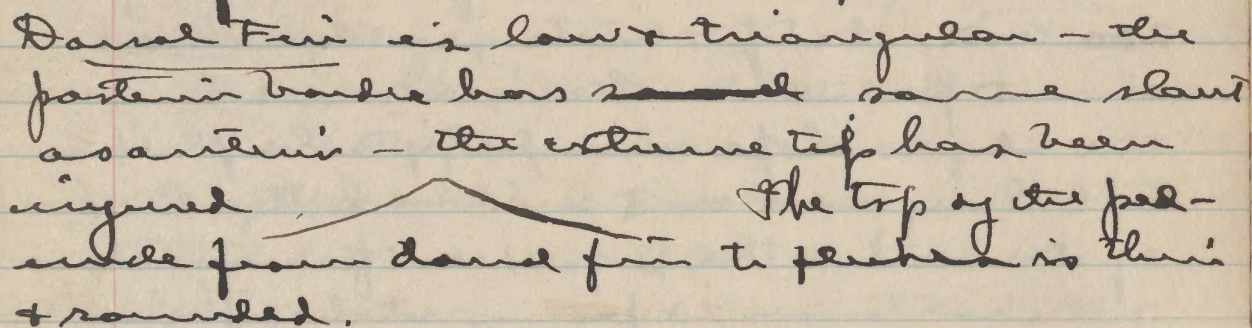 Dorsal Fin is low & triangular - the
posterior border has same slant
as anterior - the extreme tip has been
injured The top of the ped-
uncle from dorsal fin to flukes is thin
& rounded.